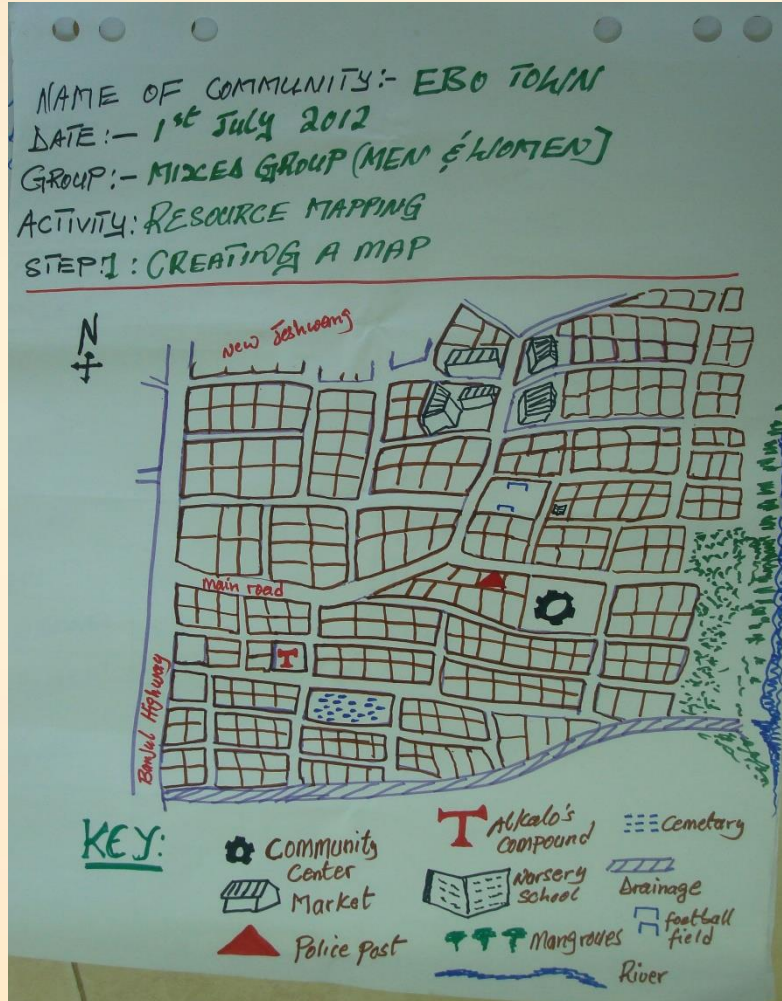 NAME OF COMMUNITY:- EBO TOWN
DATE:- 1st July 2012
GROUP:- MIXED GROUP (MEN & WOMEN]
ACTIVITY: RESOURCE MAPPING
STEP:1: CREATING A MAP
N
New Jeshwang
main road
T
Banjul Highway
KEY:
Community
Center
Market
Police post
T
Alkalo's
compound
Norsery
school
Mangroves
Cemetary
Drainage
football
field
River